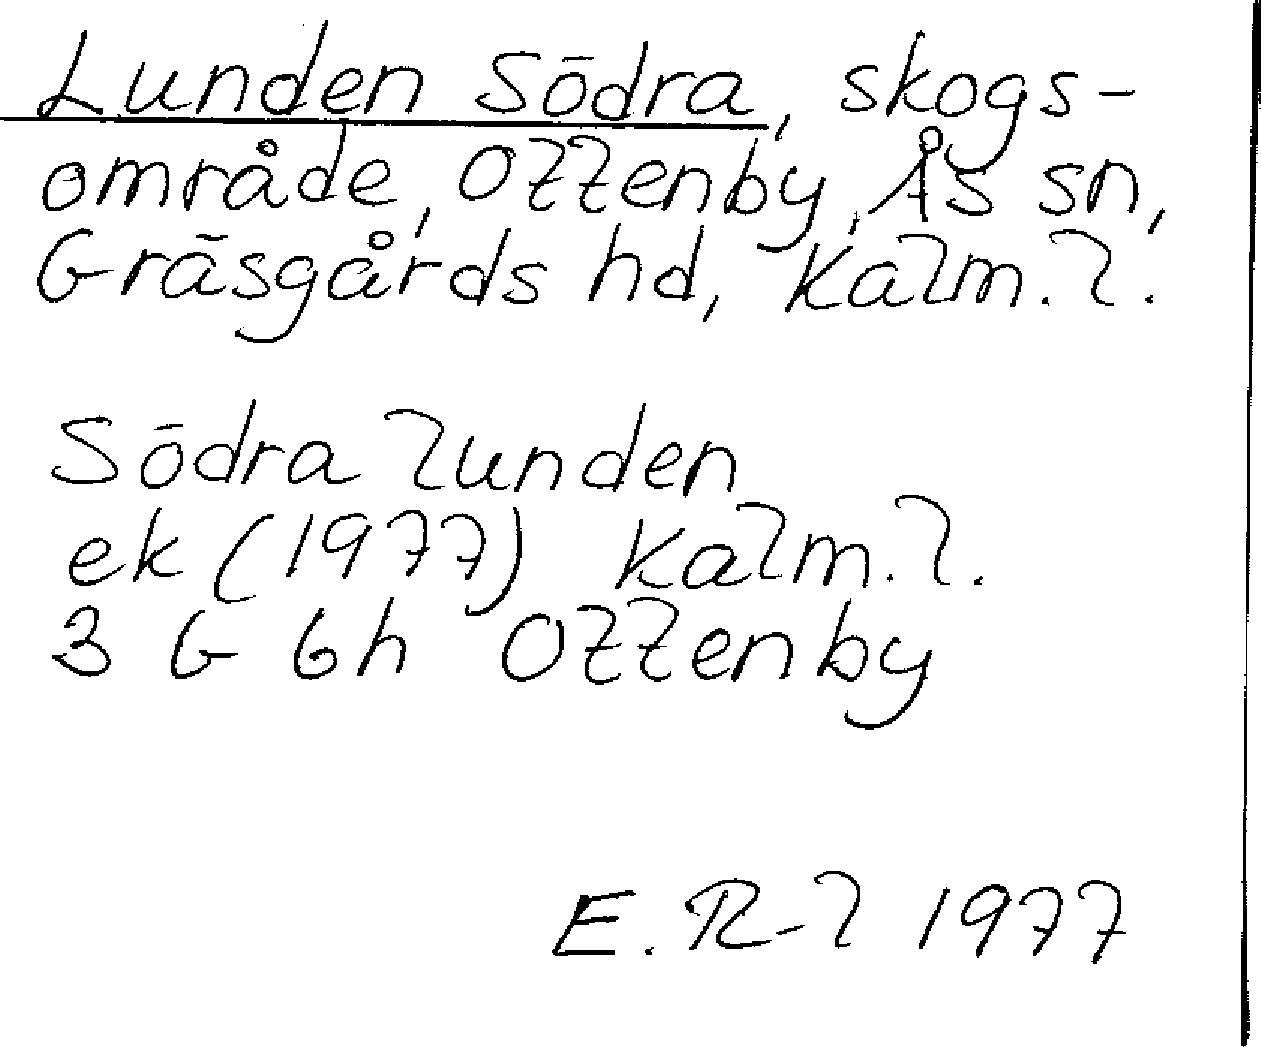 Lunden Södra, skogs-
område, Ottenby, Ås sn,
Gräsgårds hd, Kalm. l.
Södra lunden
ek (1977) Kalm. l.
3 G 6h Ottenby
E. R-l 1977